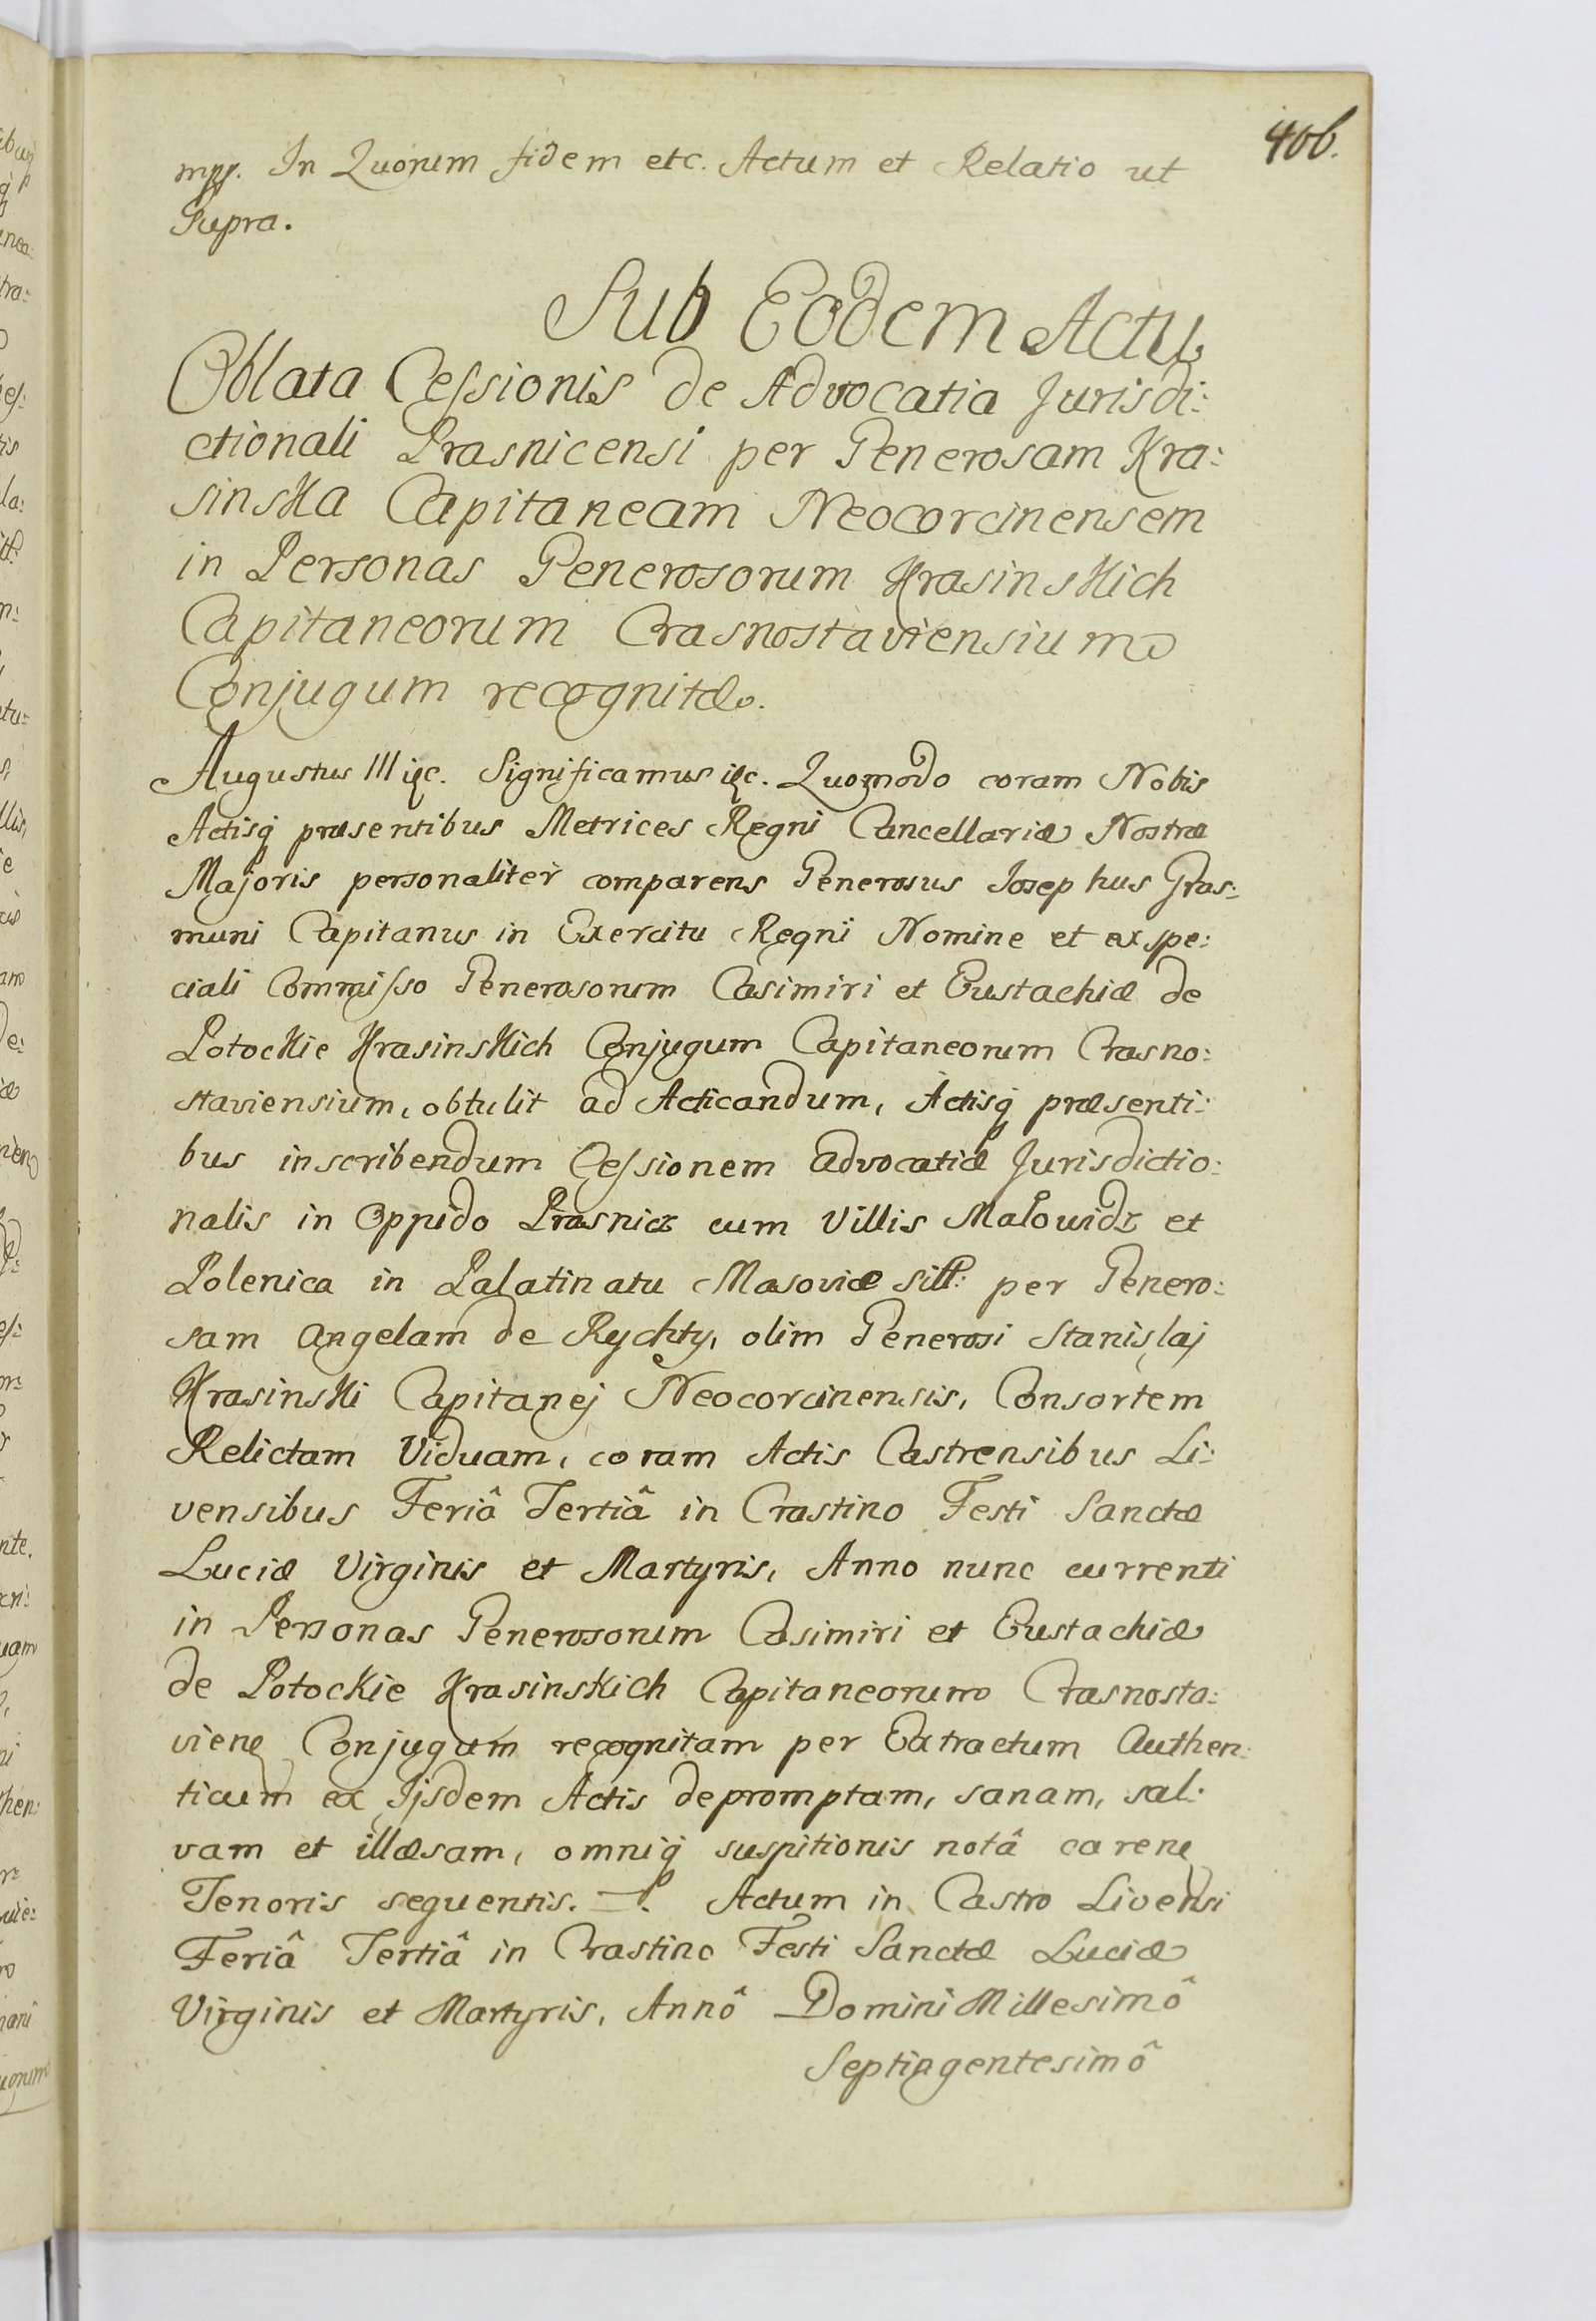 406.
mpp. In Quorum fidem etc. Actum et Relatio ut
Supra.
Sub Eodem Actu
Oblata Cessionis de Advocatia Jurisdi:
ctionali Prasnicensi per Generosam Kra:
sinska Capitaneam Neocorcinensem
in Personas Generosorum Krasinskich
Capitaneorum Crasnostaviensium
Conjugum recognitæ.
Augustus III etc. Significamus etc. Quomodo coram Nobis
Actisq præsentibus Metrices Regni Cancellariæ Nostræ
Majoris personaliter comparens Generosus Josephus Gras:
muni Capitanus in Exercitu Regni Nomine et ex spe:
ciali Commisso Generosorum Casimiri et Eustachiæ de
Potockie Krasinskich Conjugum Capitaneorum Crasno:
staviensium, obtulit ad Acticandum, Actisq præsenti:
bus inscribendum Cessionem advocatiæ Jurisdictio:
nalis in Oppido Prasnicz cum Villis Małowidz et
Polenica in Palatinatu Masoviæ sitt: per Genero:
sam Angelam de Rychty, olim Generosi Stanislaj
Krasinski Capitanej Neocorcinensis, Consortem
Relictam Viduam, coram Actis Castrensibus Li:
vensibus Feriâ Tertiâ in Crastino Festi Sanctæ
Luciæ Virginis et Martyris, Anno nunc currenti
in Personas Generosorum Casimiri et Eustachiæ
de Potockie Krasinskich Capitaneorum Crasnosta:
vien Conjugum recognitam per Extractum Authen:
ticum ex Ijsdem Actis depromptam, sanam, sal:
vam et illæsam, omniq suspitionis notâ caren
Tenoris sequentis. =. Actum in Castro Livensi
Feriâ Tertiâ in Crastino Festi Sanctæ Luciæ
Virginis et Martyris, Annô Domini Millesimô
Septingentesimô